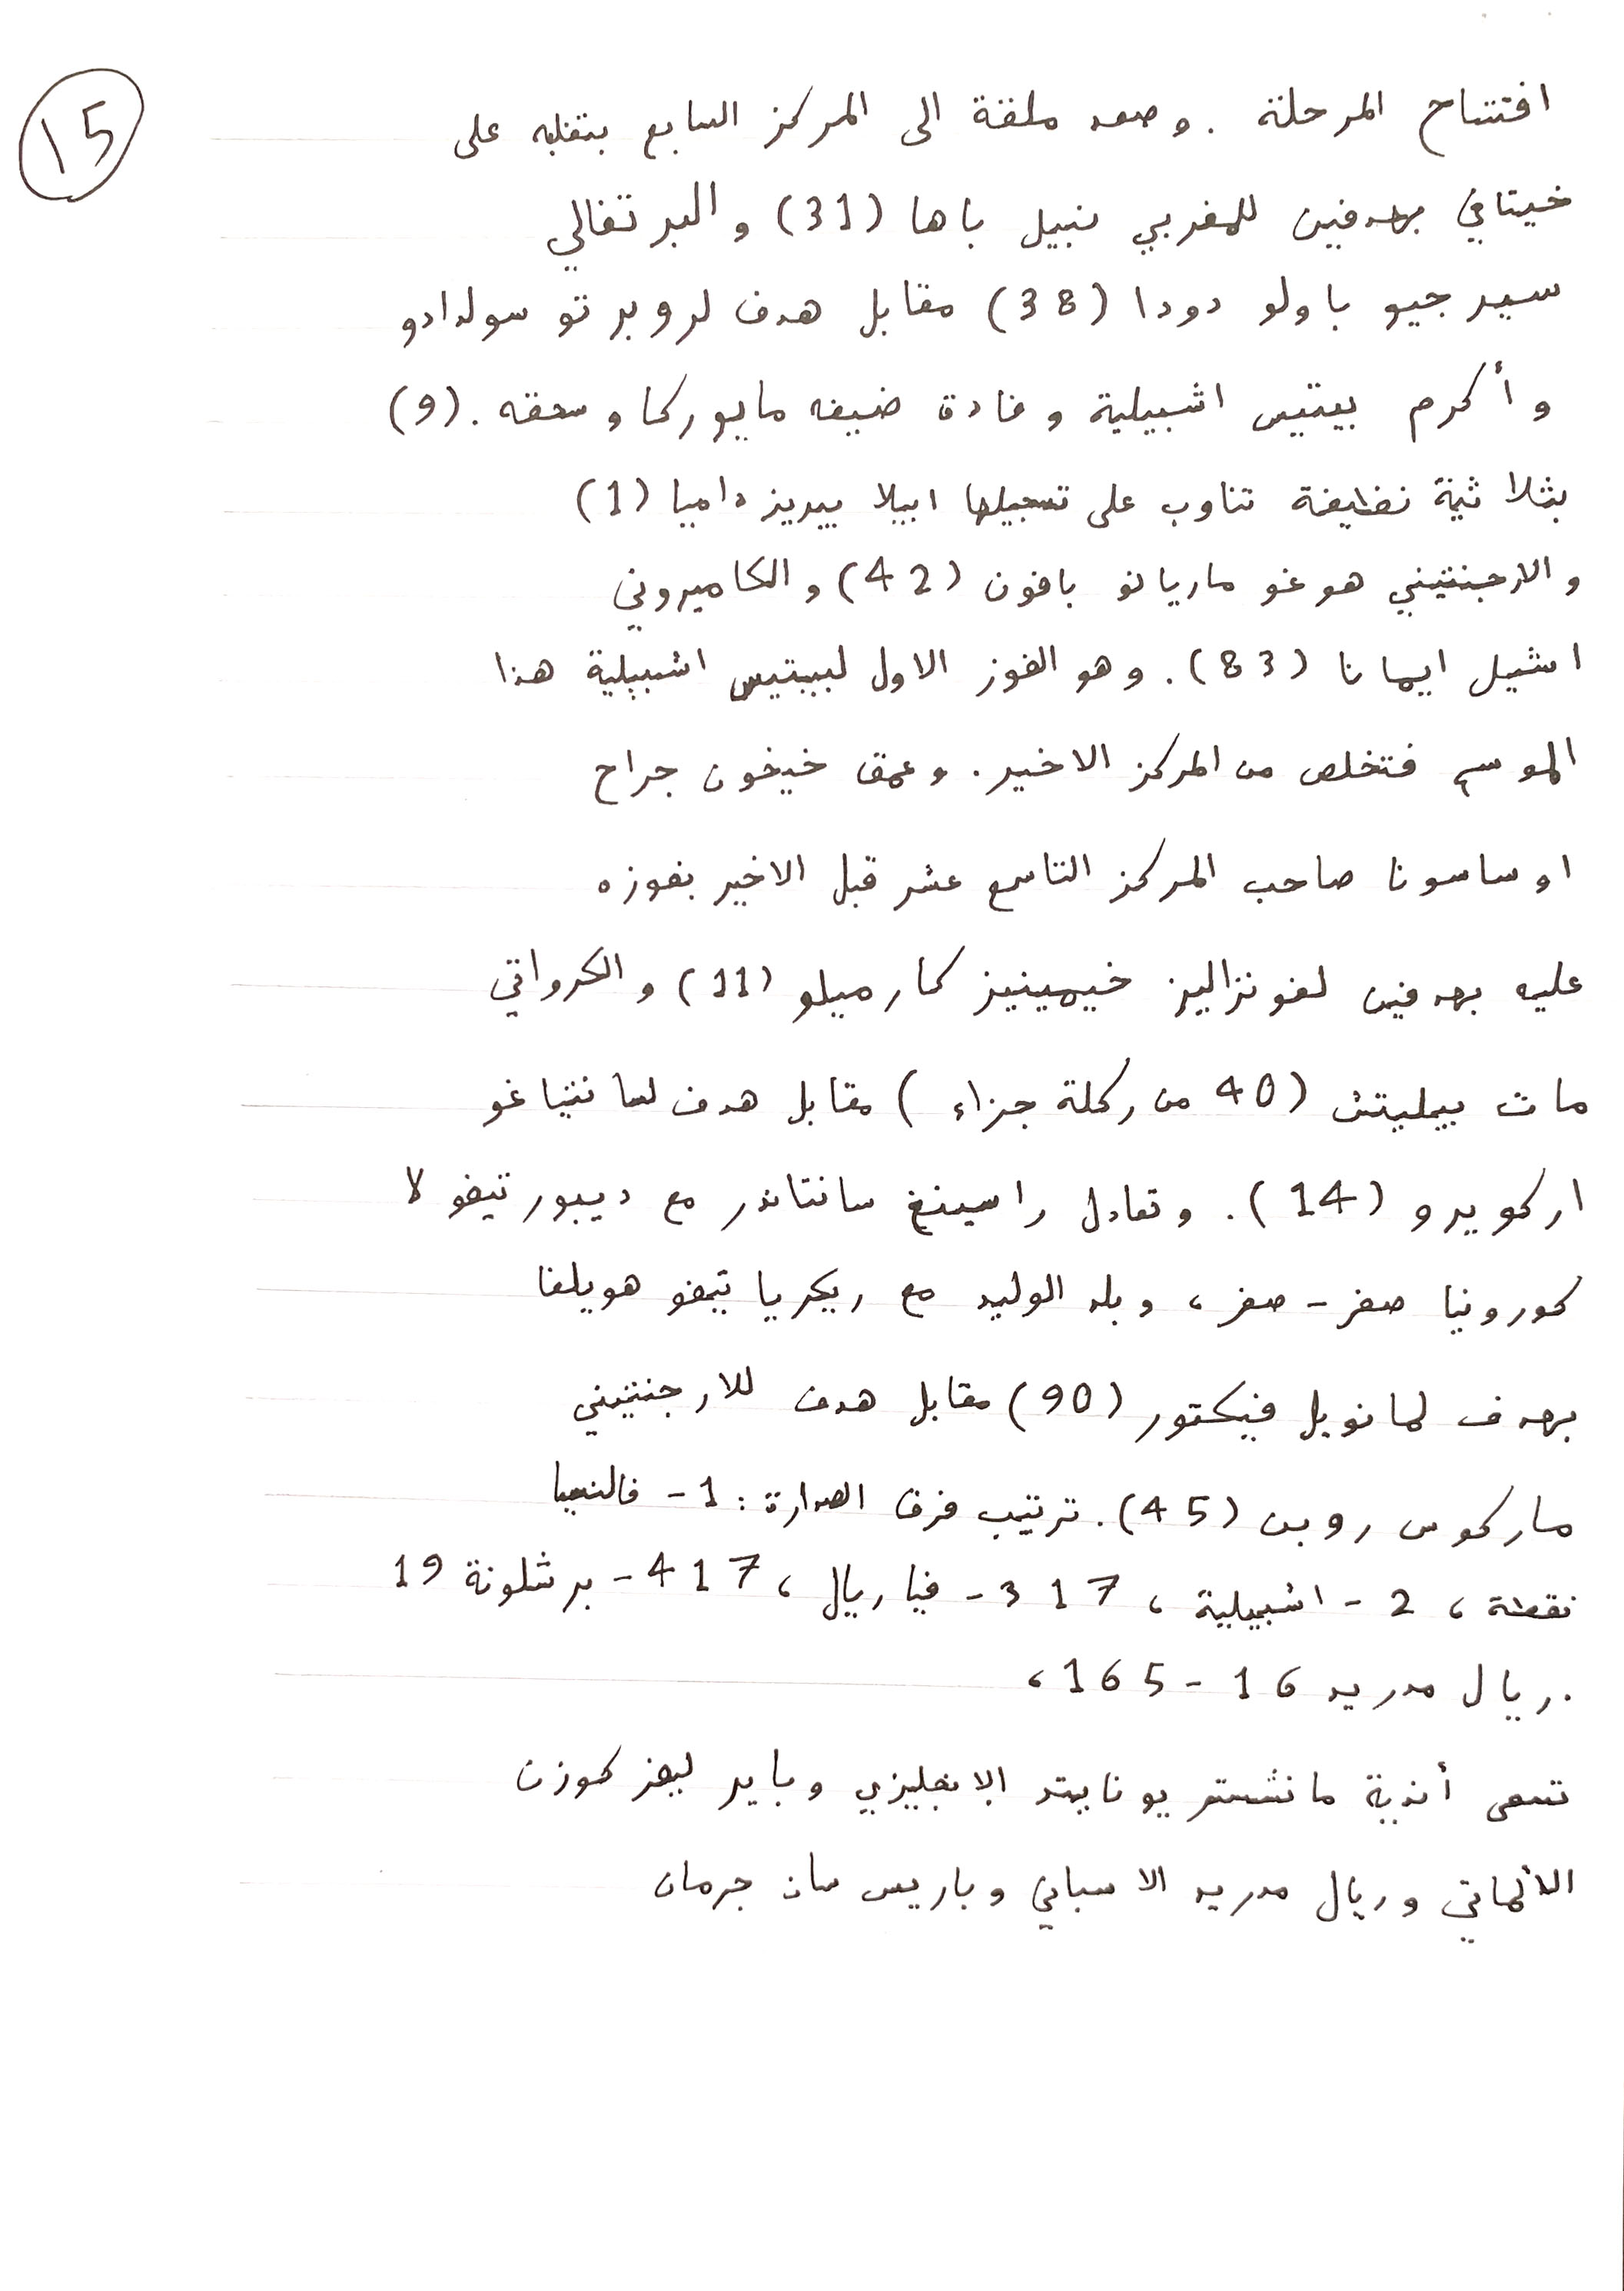 15
افتتاح المرحلة . وصعد ملقة الى المركز السابع بتغلبه على
خيتافي بهدفين للمغربي نبيل باها (31) و البرتغالي
سيرجيو باولو دودا (38) مقابل هدف لروبرتو سولدادو
وأكرم بيتيس اشبيلية وفادة ضيفه مايوركا وسحقه . (9)
بثلاثية نظيفة تناوب على تسجيلها ابيلا بيريز داميا (1)
والارجنتيني هوغو ماريانو بافون (42) و الكاميروني
اشيل ايمانا (83) . وهو الفوز الاول لبيتيس اشبيلية هذا
الموسم فتخلص من المركز الاخير . وعمق خيخون جراح
اوساسونا صاحب المركز التاسع عشر قبل الاخير بفوزه
عليه بهدفين لغونزاليز خيمينيز كارميلو (11) و الكرواتي
مات بيليتش (40 من ركلة جزاء ) مقابل هدف لسانتياغو
اركويرو (14) . وتعادل راسينغ سانتاندر مع ديبورتيفو لا
كورونيا صفر - صفر ، وبلد الوليد مع ريكرياتيفو هويلفا
بهدف لمانويل فيكتور (90) مقابل هدف للارجنتيني
ماركوس روبن (45) . ترتيب فرق الصدارة : 1 - فالنسيا
نقطة ، 2 - اشبيلية ، 317 - فياريال ، 417 - برشلونة 19
. ريال مدريد 16 - 165 ،
تسعى أندية مانشستر يونايتد الإنجليزي وباير ليفركوزن
الألماني وريال مدريد الاسباني وباريس سان جرمان